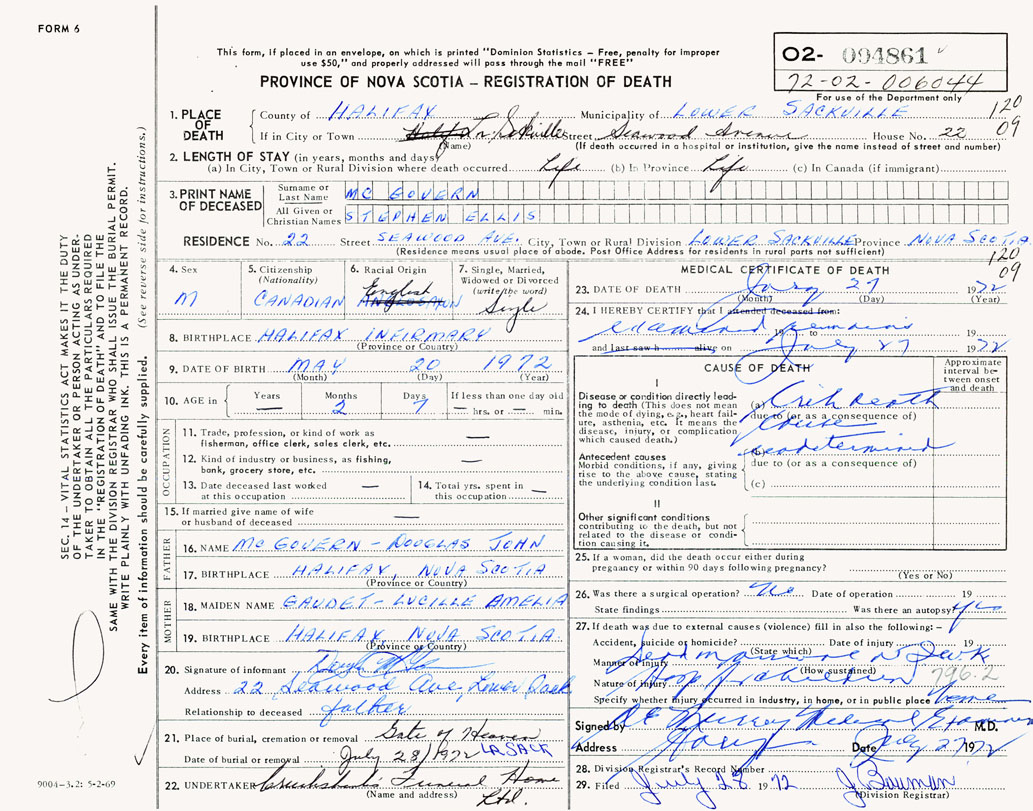 FORM 6
This form, if placed in an envelope, on which is printed "Dominion Statistics – Free, penalty for improper
use $50," and properly addressed will pass through the mail "FREE"
PROVINCE OF NOVA SCOTIA – REGISTRATION OF DEATH
02- 094861
72-02-006044
For use of the Department only
120
09
1. PLACE OF DEATH
County of HALIFAX Municipality of LOWER SACKVILLE
If in City or Town Lr. Sackville Street Seawood Avenue House No. 22
(Name) (If death occurred in a hospital or institution, give the name instead of street and number)
2. LENGTH OF STAY (in years, months and days)
(a) In City, Town or Rural Division where death occurred Life (b) In Province Life (c) In Canada (if immigrant)
3. PRINT NAME OF DECEASED
Surname or Last Name MC GOVERN
All Given or Christian Names STEPHEN ELLIS
RESIDENCE No. 22 Street SEAWOOD AVE. City, Town or Rural Division LOWER SACKVILLE Province NOVA SCOTIA
(Residence means usual place of abode. Post Office Address for residents in rural parts not sufficient)
120
09
4. Sex
M
5. Citizenship
(Nationality)
CANADIAN
6. Racial Origin
English
7. Single, Married,
Widowed or Divorced
(write the word)
Single
8. BIRTHPLACE HALIFAX INFIRMARY
(Province or Country)
9. DATE OF BIRTH MAY 20 1972
(Month) (Day) (Year)
10. AGE in
Years Months Days If less than one day old
— 2 7 — hrs. or — min.
OCCUPATION
11. Trade, profession, or kind of work as —
fisherman, office clerk, sales clerk, etc.
12. Kind of industry or business, as fishing, —
bank, grocery store, etc.
13. Date deceased last worked —
at this occupation
14. Total yrs. spent in —
this occupation
15. If married give name of wife —
or husband of deceased
FATHER
16. NAME MC GOVERN – DOUGLAS JOHN
17. BIRTHPLACE HALIFAX, NOVA SCOTIA
(Province or Country)
MOTHER
18. MAIDEN NAME GAUDET – LUCILLE AMELIA
19. BIRTHPLACE HALIFAX, NOVA SCOTIA
(Province or Country)
20. Signature of informant
Address 22 Seawood Ave, Lower Sack
Relationship to deceased father
21. Place of burial, cremation or removal Gate of Heaven
LR SACK
Date of burial or removal July 28/1972
22. UNDERTAKER Cruikshank's Funeral Home
(Name and address) Ltd.
MEDICAL CERTIFICATE OF DEATH
23. DATE OF DEATH July 27 1972
(Month) (Day) (Year)
24. I HEREBY CERTIFY that I attended deceased from:
examined remains 19 to 19
and last saw h alive on July 27 1972
CAUSE OF DEATH
Approximate
interval between onset
and death
I
Disease or condition directly leading
to death (This does not mean
the mode of dying, e.g., heart failure,
asthenia, etc. It means the
disease, injury, or complication
which caused death.)
(a) Crib Death
due to (or as a consequence of)
Cause
(b) undetermined
due to (or as a consequence of)
(c)
Antecedent causes
Morbid conditions, if any, giving
rise to the above cause, stating
the underlying condition last.
II
Other significant conditions
contributing to the death, but not
related to the disease or condition
causing it.
25. If a woman, did the death occur either during
pregnancy or within 90 days following pregnancy?
(Yes or No)
26. Was there a surgical operation? No Date of operation 19
State findings Was there an autopsy? yes
27. If death was due to external causes (violence) fill in also the following: –
Accident, suicide or homicide? Date of injury 19
(State which)
Manner of injury
(How sustained)
Nature of injury 796.2
Specify whether injury occurred in industry, in home, or in public place home
Signed by Murray Medical Examiner M.D.
Address Date July 27 1972
28. Division Registrar's Record Number
29. Filed July 28 1972 J. Bauman
(Division Registrar)
SEC. 14 – VITAL STATISTICS ACT MAKES IT THE DUTY
OF THE UNDERTAKER OR PERSON ACTING AS UNDERTAKER
TO OBTAIN ALL THE PARTICULARS REQUIRED
IN THE "REGISTRATION OF DEATH" AND TO FILE THE
SAME WITH THE DIVISION REGISTRAR WHO SHALL ISSUE THE BURIAL PERMIT.
WRITE PLAINLY WITH UNFADING INK. THIS IS A PERMANENT RECORD.
Every item of information should be carefully supplied. (See reverse side for instructions.)
9004–3.2: 5-2-69